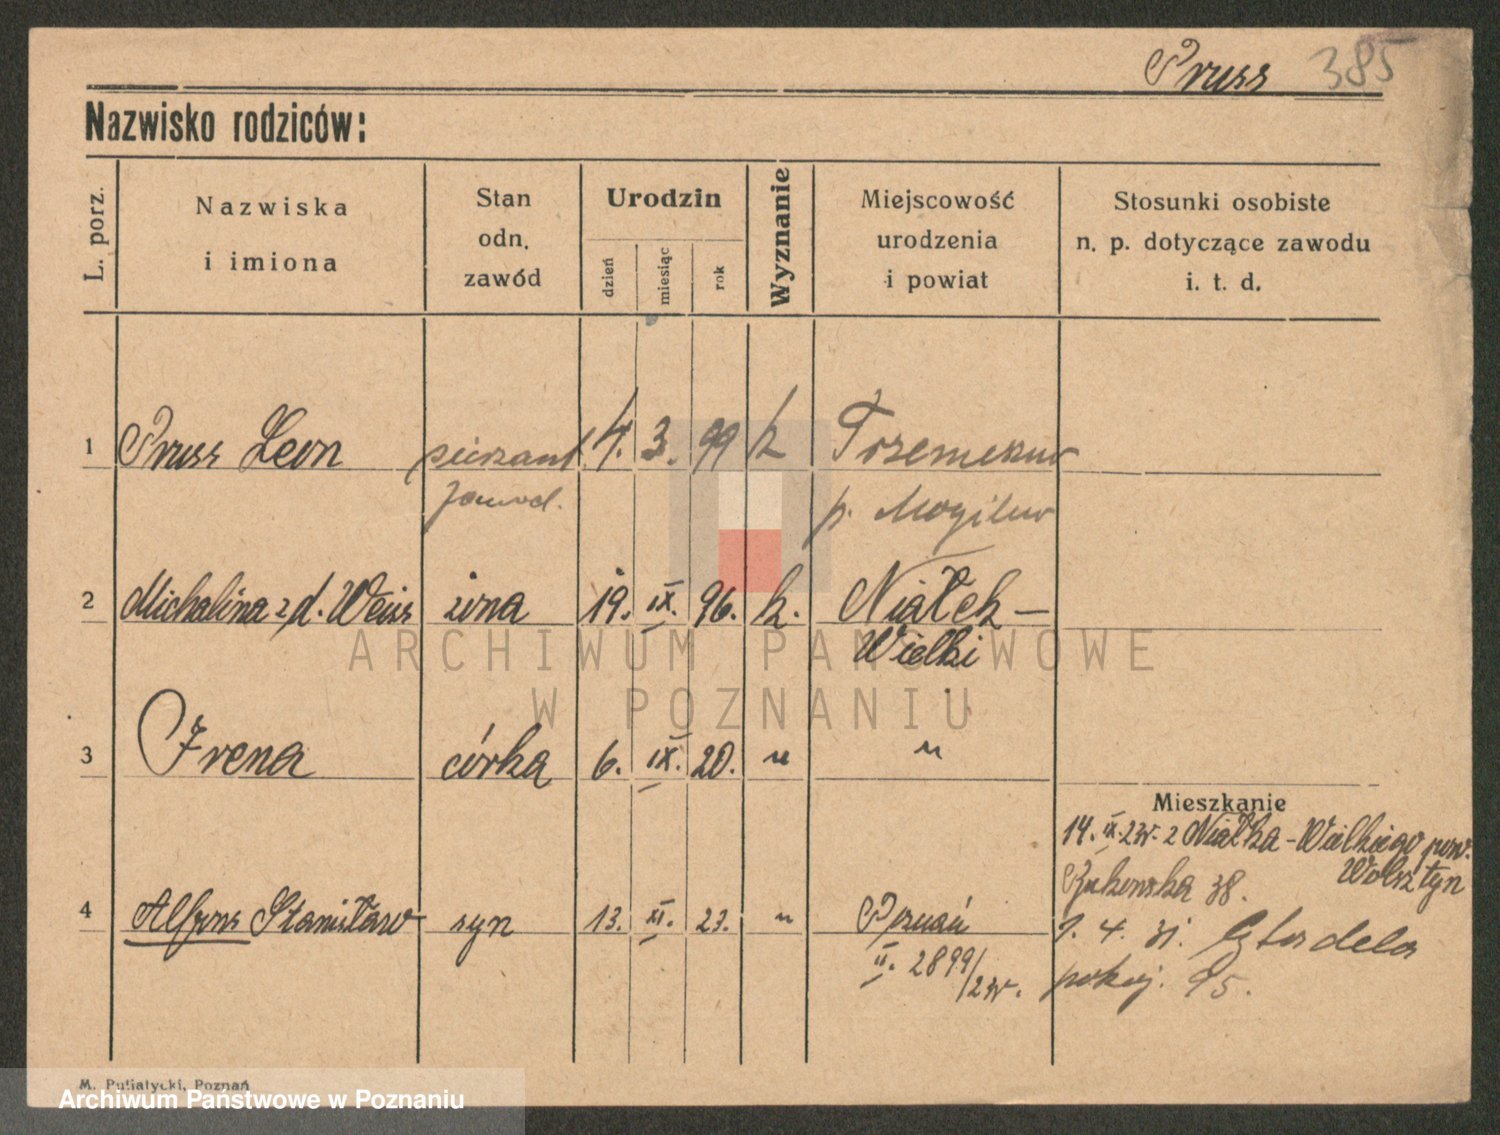 Pruss 385
Nazwisko rodziców:
L. porz.
Nazwiska
i imiona
Stan
odn.
zawód
Urodzin
dzień
miesiąc
rok
Wyznanie
Miejscowość
urodzenia
i powiat
Stosunki osobiste
n. p. dotyczące zawodu
i. t. d.
1 Pruss Leon sierżant 4. 3. 99 k Trzemeszno
zawod. p. Mogilno
2 Michalina z d. Weiss żona 19. IX. 96. k. Niałek –
Wielki
ARCHIWUM PAŃSTWOWE
W POZNANIU
3 Irena córka 6. IX. 20. " "
Mieszkanie
14. IX. 23r. z Niałka-Wielkiego pow.
Wolsztyn
Bukowska 38.
4 Alfons Stanisław syn 13. XI. 23. " Poznań
II. 2899/23r.
1. 4. 31. Cytadela
pokój. 95.
M. Putiatycki, Poznań
Archiwum Państwowe w Poznaniu